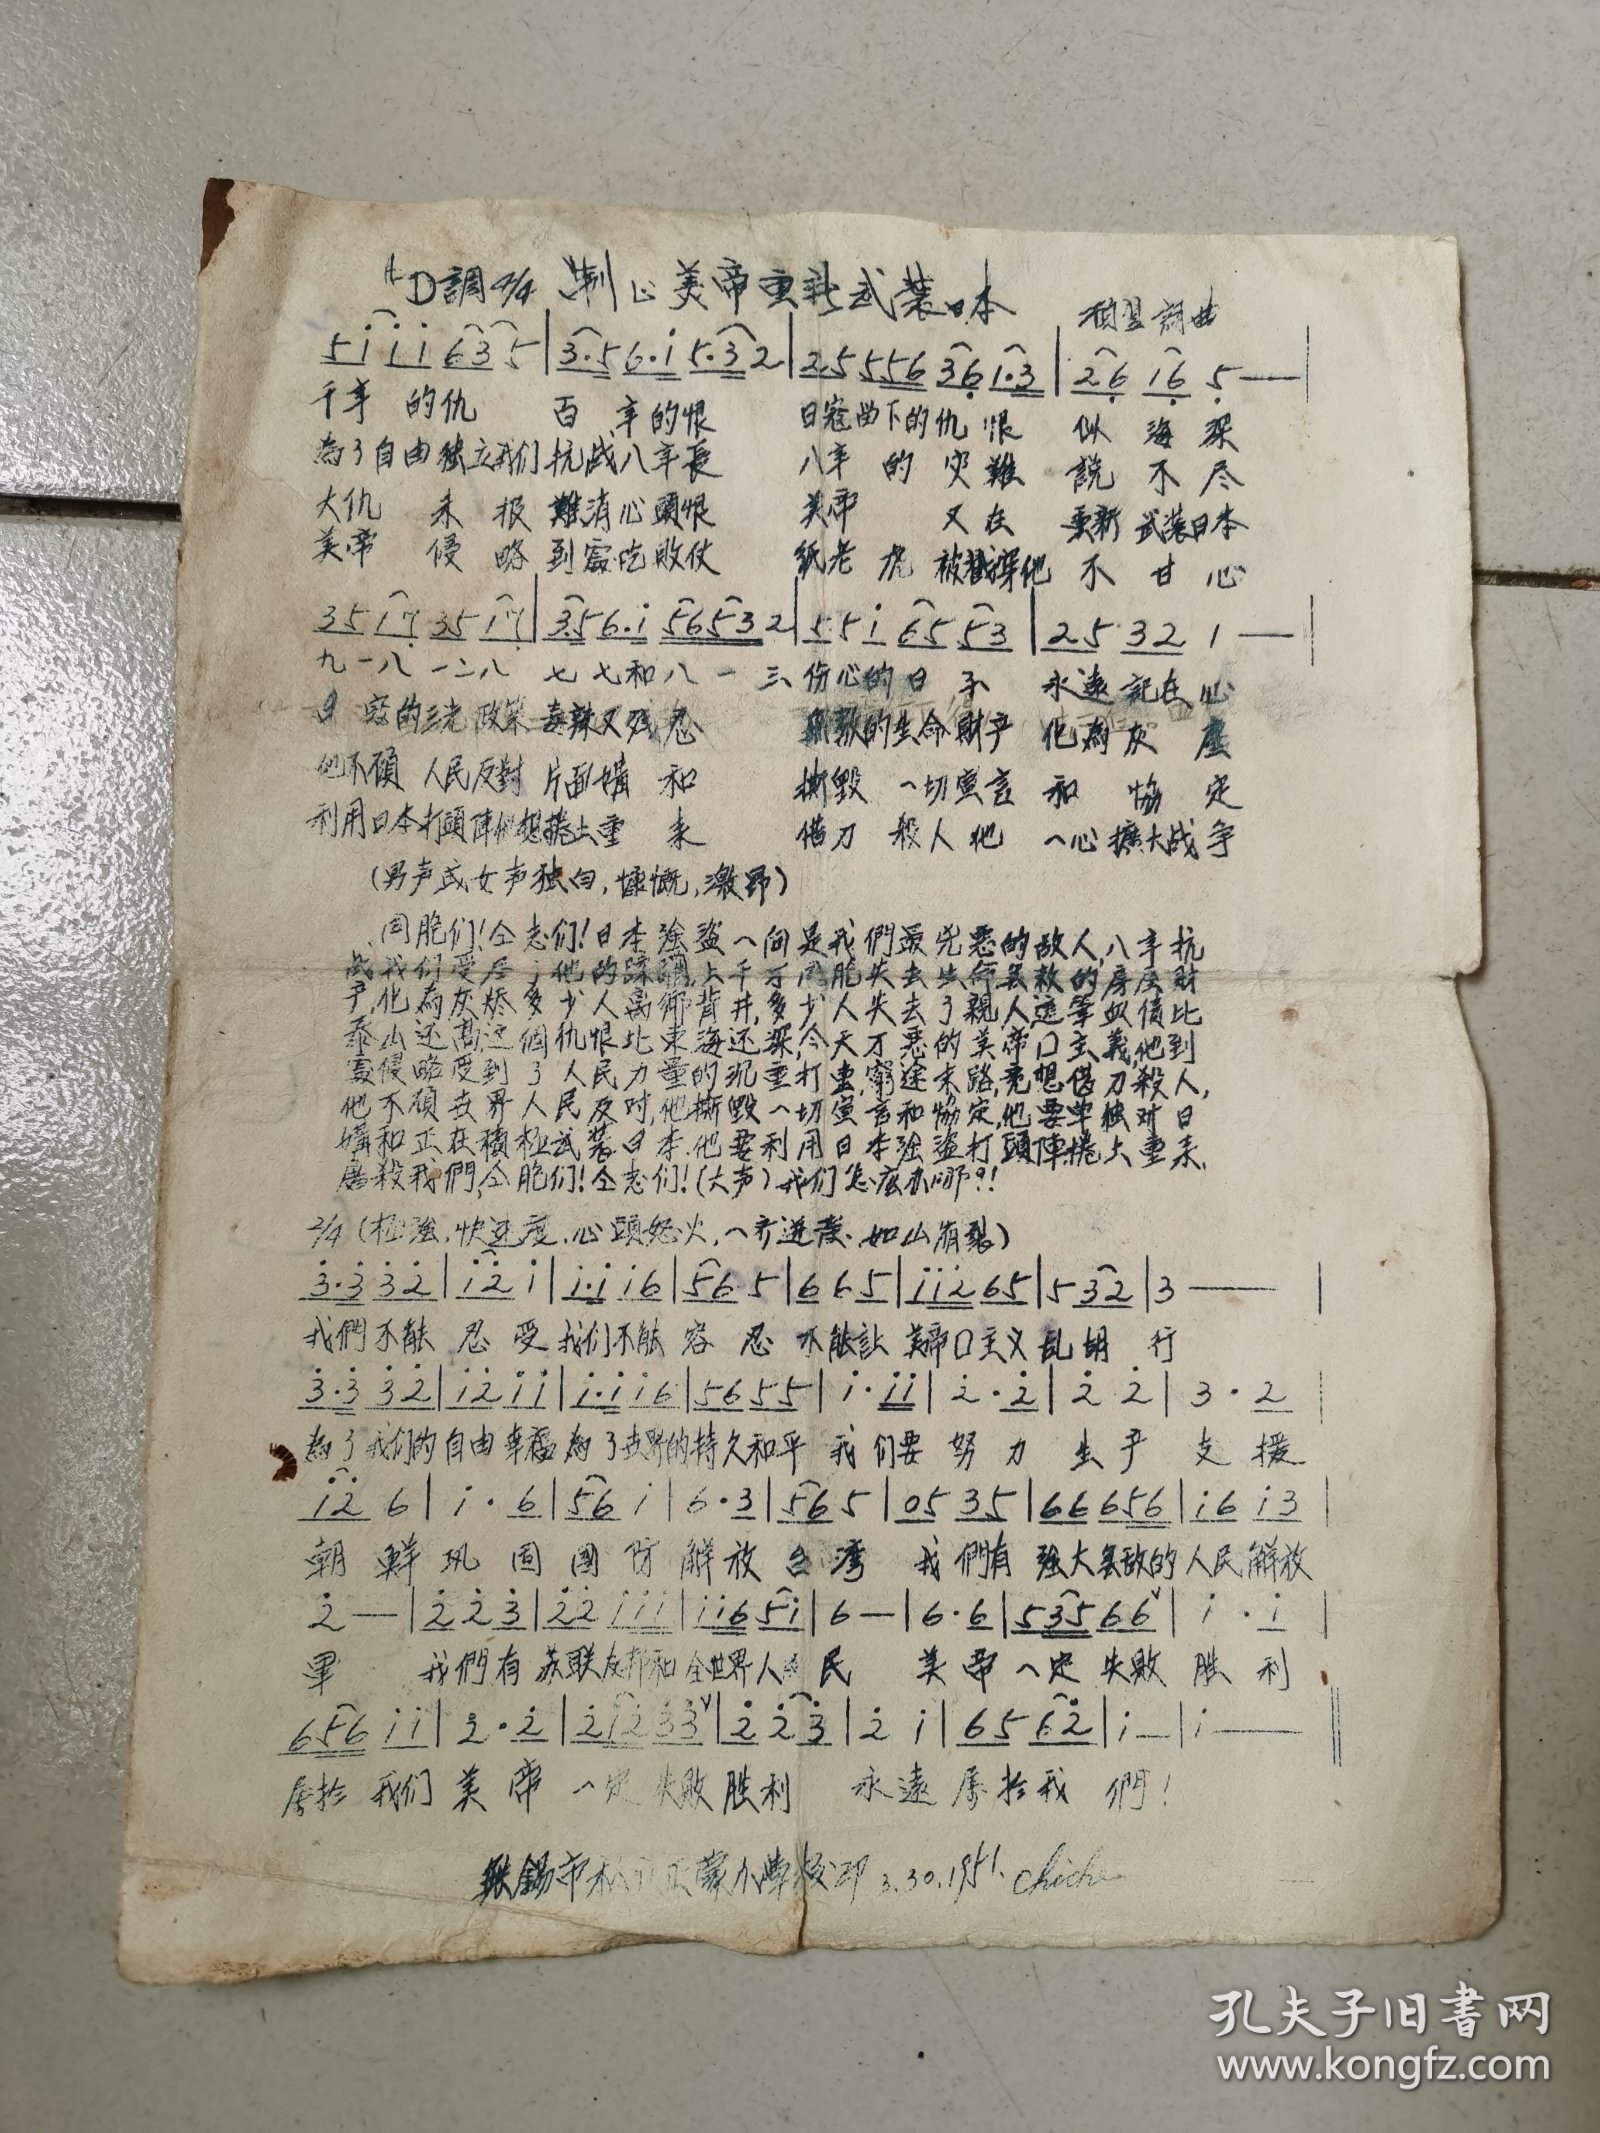 D調 2/4 制止美帝重新武装日本
詞曲
5 i i i 6 3 5 | 3·5 6·i 5·3 2 | 2 5 5 5 6 3 6 1·3 | 2 6 1 6 5 — |
千年 的仇 百 年的恨 日寇留下的仇 恨 似 海 深
為了自由独立我们抗战八年長 八年 的 灾難 說 不 尽
大仇 未 报 難消心頭恨 美帝 又在 重新 武装日本
美帝 侵 略 到處吃敗仗 紙老虎 被戳穿他 不 甘 心
3 5 i 7 3 5 i 7 | 3·5 6·i 5 6 5 3 2 | 5 5 i 6 5 5 3 | 2 5 3 2 1 — |
九一八 一二八 七七和八一三 伤心的日子 永遠記在心
日寇的三光政策毒辣又残忍 無数的生命財产 化為灰塵
他不顧 人民反對 片面媾和 撕毁 一切宣言 和 協 定
利用日本打頭陣他想捲土重 来 借刀 殺人他 一心擴大战争
(男声或女声独白,慷慨,激昂)
同胞们!仝志们!日本强盗一向是我們最兇恶的敌人,八年抗
战,我们受尽了他的蹂躪,上千万同胞失去生命無数的房屋財
产,化為灰烬多少人离鄉背井,多少人失去了親人,這筆血債比
泰山还高,这個仇恨比東海还深,今天万恶的美帝口主義,他到
處侵略受到了人民力量的沉重打击,窮途末路,竟想借刀殺人,
他不顧世界人民反对,他撕毁一切宣言和協定,他要单独对日
媾和正在積极武装日本.他要利用日本强盗打頭陣捲土重来,
屠殺我們,仝胞们!仝志们!(大声)我们怎底办哪?!
2/4 (极强,快速度.心頭怒火,一齐迸發.如山崩裂)
3·3 3 2 | i 2 i | i·i i 6 | 5 6 5 | 6 6 5 | i i 2 6 5 | 5 3 2 | 3 — |
我們不能 忍 受我们不能 容 忍 不能讓 美帝口主义乱胡 行
3·3 3 2 | i 2 i i | i·i i 6 | 5 6 5 5 | i·i i | 2·2 | 2 2 | 3·2 |
為了我们的自由幸福為了世界的持久和平 我们要 努 力 生 产 支 援
i 2 6 | i·6 | 5 6 i | 6·3 | 5 6 5 | 0 5 3 5 | 6 6 6 5 6 | i 6 i 3 |
朝 鮮 巩 固 國 防 解 放 台 湾 我們有 强大無敌的人民解放
2 — | 2 2 3 | 2 2 i i i | i i 6 5 i | 6 — | 6·6 | 5 3 5 6 6 | i·i |
軍 我們有 苏联友邦和全世界人 民 美帝一定 失敗 胜 利
6 5 6 i i | 2·2 | 2 i 2 3 3 | 2 2 3 | 2 i | 6 5 6 2 | i — | i — ‖
屬於 我们 美 帝 一定 失敗 胜利 永遠屬於我 們!
無錫市私立正蒙小學校印 3.30.1951. Chiche
孔夫子旧书网
www.kongfz.com